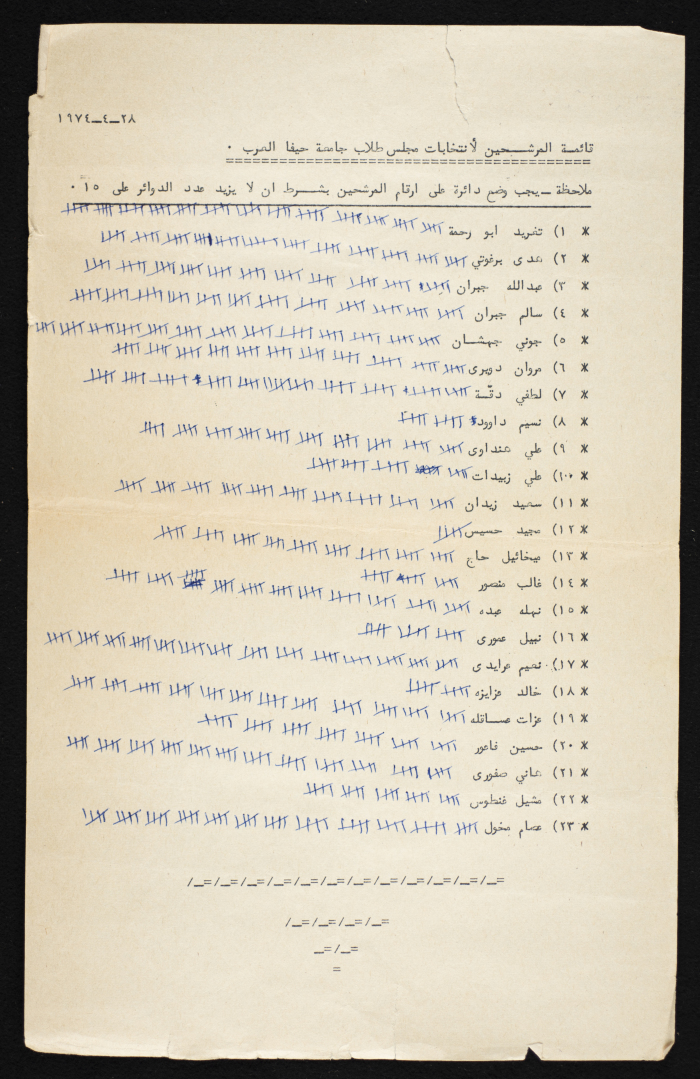 ٢٨ــ٤ــ١٩٧٤
قائمـة المرشـــحين لأنتخابات مجلس طلاب جامعة حيفا العرب ٠
ملاحظة ــ يجب وضع دائرة على ارقام المرشحين بشـــرط ان لا يزيد عدد الدوائر على ١٥ ٠
* ١) تغريد ابو رحمة
* ٢) هدى برغوثي
* ٣) عبدالله جبران
* ٤) سالم جبران
* ٥) جوني جهشـــان
* ٦) مروان دويرى
* ٧) لطفي دقّسة
* ٨) نسيم داوود
* ٩) علي هنداوى
* ١٠) علي زبيدات
* ١١) سعيد زيدان
* ١٢) مجيد حسيس
* ١٣) ميخائيل حاج
* ١٤) غالب منصور
* ١٥) نهله عبده
* ١٦) نبيل عمورى
* ١٧) نعيم عرايدى
* ١٨) خالد عزايزه
* ١٩) عزات عســاقله
* ٢٠) حسين فاعور
* ٢١) هاني صفورى
* ٢٢) مشيل غنطوس
* ٢٣) عصام مخول
/ــ=/ــ=/ــ=/ــ=/ــ=/ــ=/ــ=/ــ=/ــ=/ــ=/ــ=/ــ=
/ــ=/ــ=/ــ=/ــ=
ــ=/ــ=
=